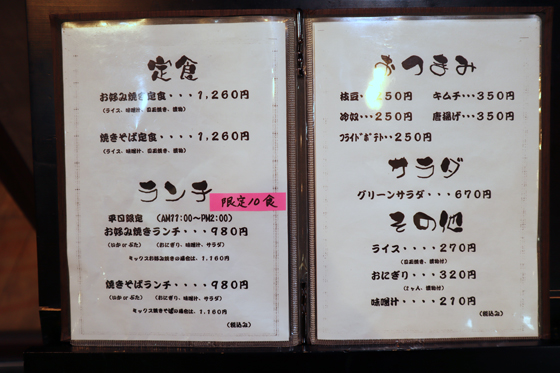 定食
お好み焼き定食・・・1,260円
(ライス、味噌汁、日替焼き、漬物)
焼きそば定食・・・・1,260円
(ライス、味噌汁、漬物)
ランチ
限定10食
平日限定 (AM11:00~PM2:00)
お好み焼きランチ・・・980円
(いか or ぶた) (おにぎり、味噌汁、サラダ)
ミックスお好み焼きの場合は、1,160円
焼きそばランチ・・・・980円
(いか or ぶた) (おにぎり、味噌汁、サラダ)
ミックス焼きそばの場合は、1,160円
(税込み)
おつまみ
枝豆・・250円 キムチ・・350円
冷奴・・250円 唐揚げ・・350円
フライドポテト・・250円
サラダ
グリーンサラダ・・・670円
その他
ライス・・・・270円
おにぎり・・・320円
(2ヶ入、漬物付)
味噌汁・・・・210円
(税込み)